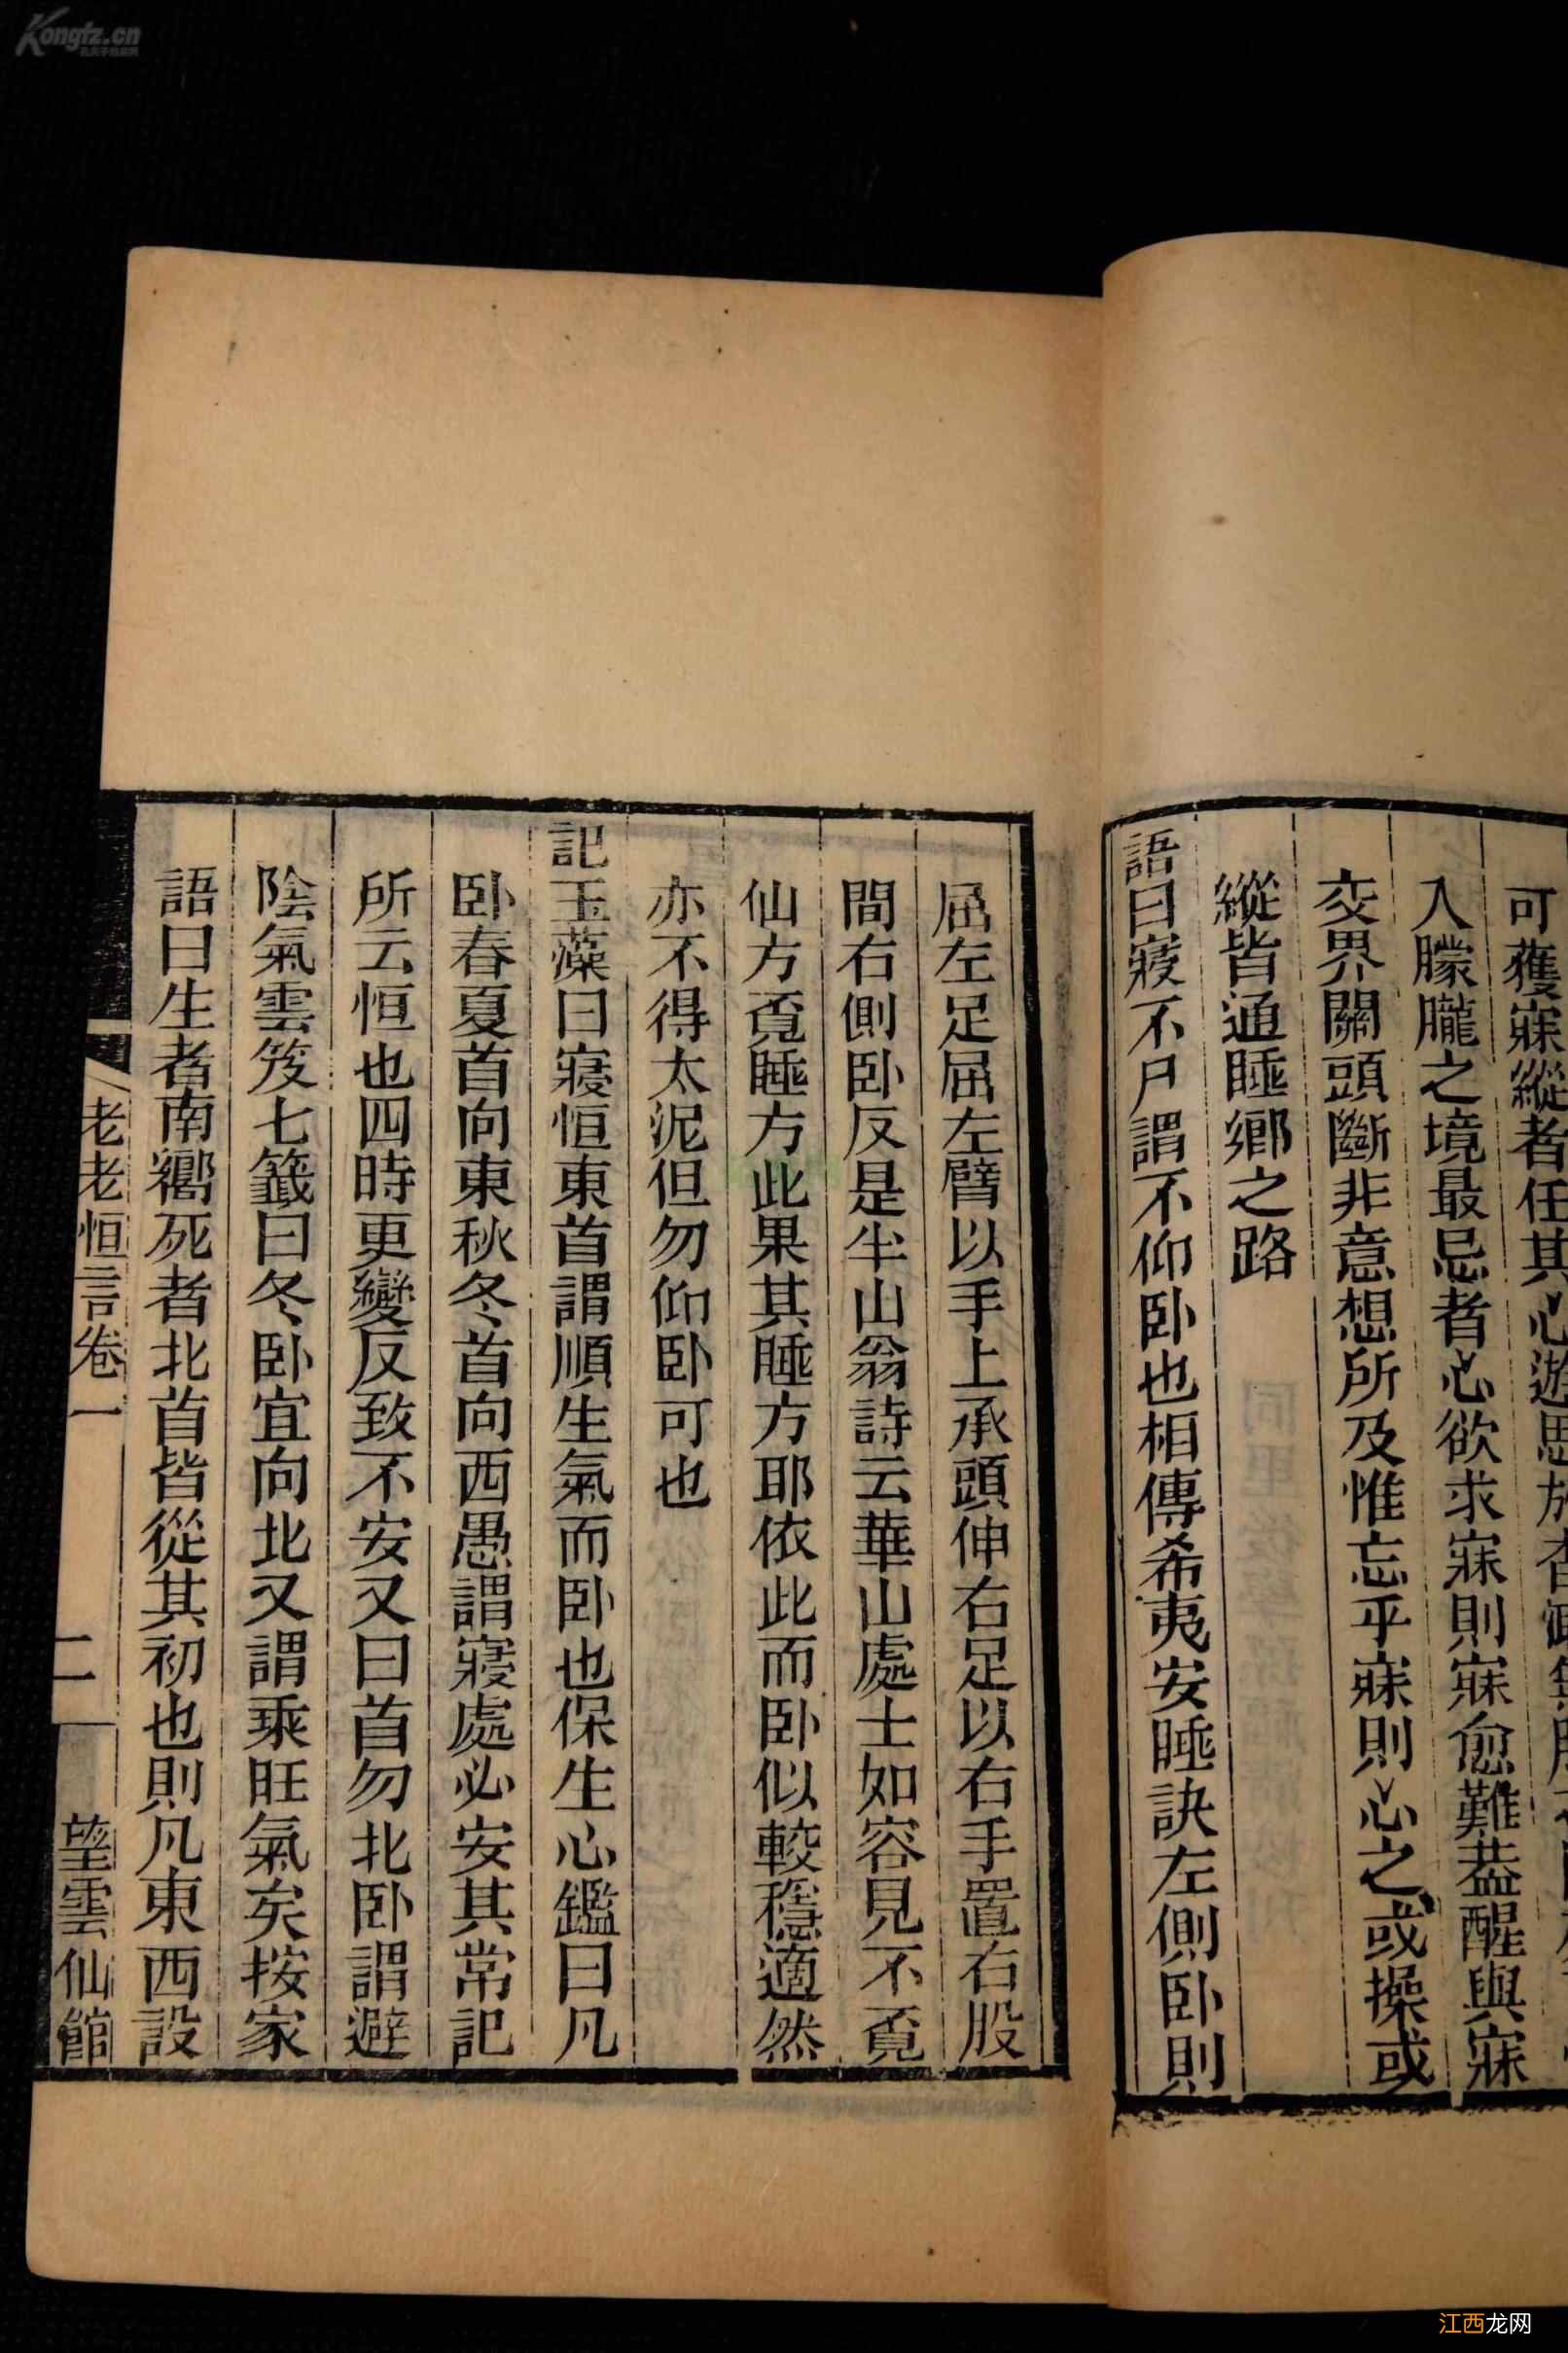 Kongfz.cn
可獲寐縱者任其心遊思於
入朦朧之境最忌者心欲求寐則寐愈難葢醒與寐
交界關頭斷非意想所及惟忘乎寐則心之或操或
縱皆通睡鄉之路
語曰寢不尸謂不仰卧也相傳希夷安睡訣左側卧則
屈左足屈左臂以手上承頭伸右足以右手置右股
間右側卧反是半山翁詩云華山處士如容見不覔
仙方覔睡方此果其睡方耶依此而卧似較穩適然
亦不得太泥但勿仰卧可也
記玉藻曰寢恒東首謂順生氣而卧也保生心鑑曰凡
卧春夏首向東秋冬首向西愚謂寢處必安其常記
所云恒也四時更變反致不安又曰首勿北卧謂避
陰氣雲笈七籤曰冬卧宜向北又謂乘旺氣矣按家
語曰生者南嚮死者北首皆從其初也則凡東西設
老老恒言卷一
二
望雲仙館
江西龙网